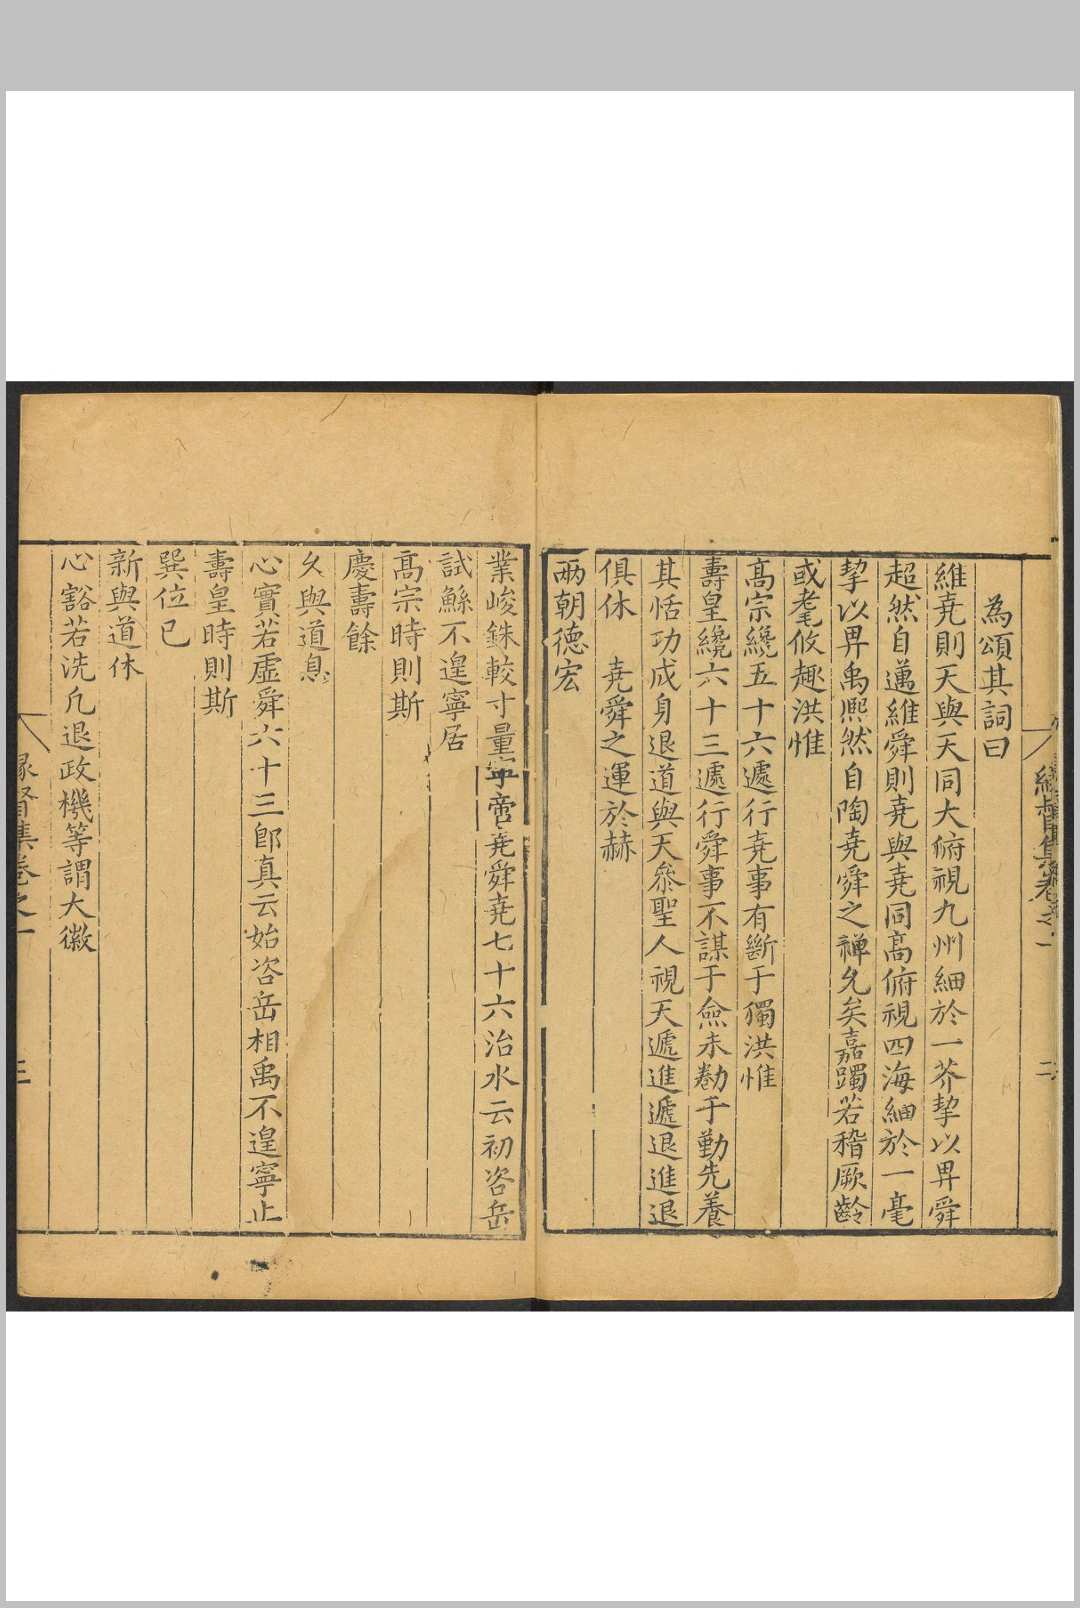 為頌其詞曰
維堯則天與天同大俯視九州細於一芥挈以畀舜
超然自邁維舜則堯與堯同高俯視四海細於一毫
挈以畀禹熙然自陶堯舜之禪允矣嘉躅若稽厥齡
或耄攸趣洪惟
高宗纔五十六遽行堯事有斷于獨洪惟
壽皇纔六十三遽行舜事不謀于僉未勌于勤先養
其恬功成身退道與天叅聖人視天遞進遞退進退
俱休　堯舜之運於赫
兩朝德宏
業峻銖較寸量寧啻堯舜堯七十六治水云初咨岳
試鯀不遑寧居
高宗時則斯
慶壽餘
久與道息
心實若虛舜六十三郎真云始咨岳相禹不遑寧止
壽皇時則斯
巽位已
新與道休
心豁若洗凡退政機等謂大徽
緣督集卷之一
三
緣督集卷之一
二